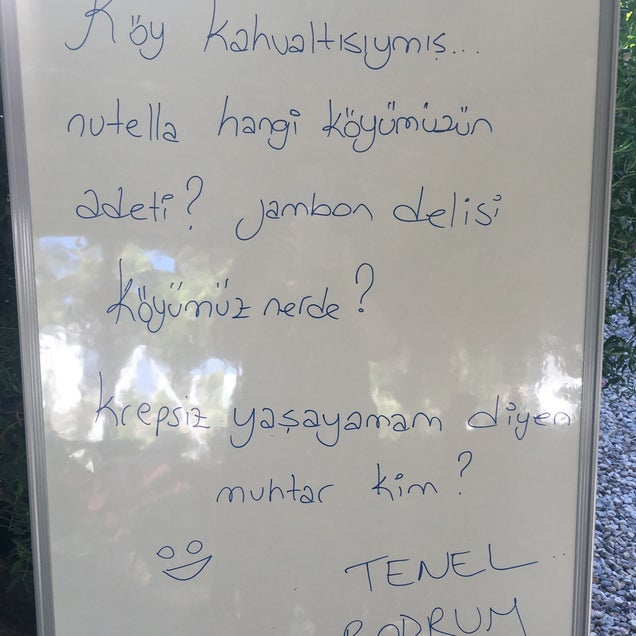 Köy kahvaltısıymış...
nutella hangi köyümüzün
adeti? jambon delisi
köyümüz nerde?
krepsiz yaşayamam diyen
muhtar kim?
TENEL
BODRUM